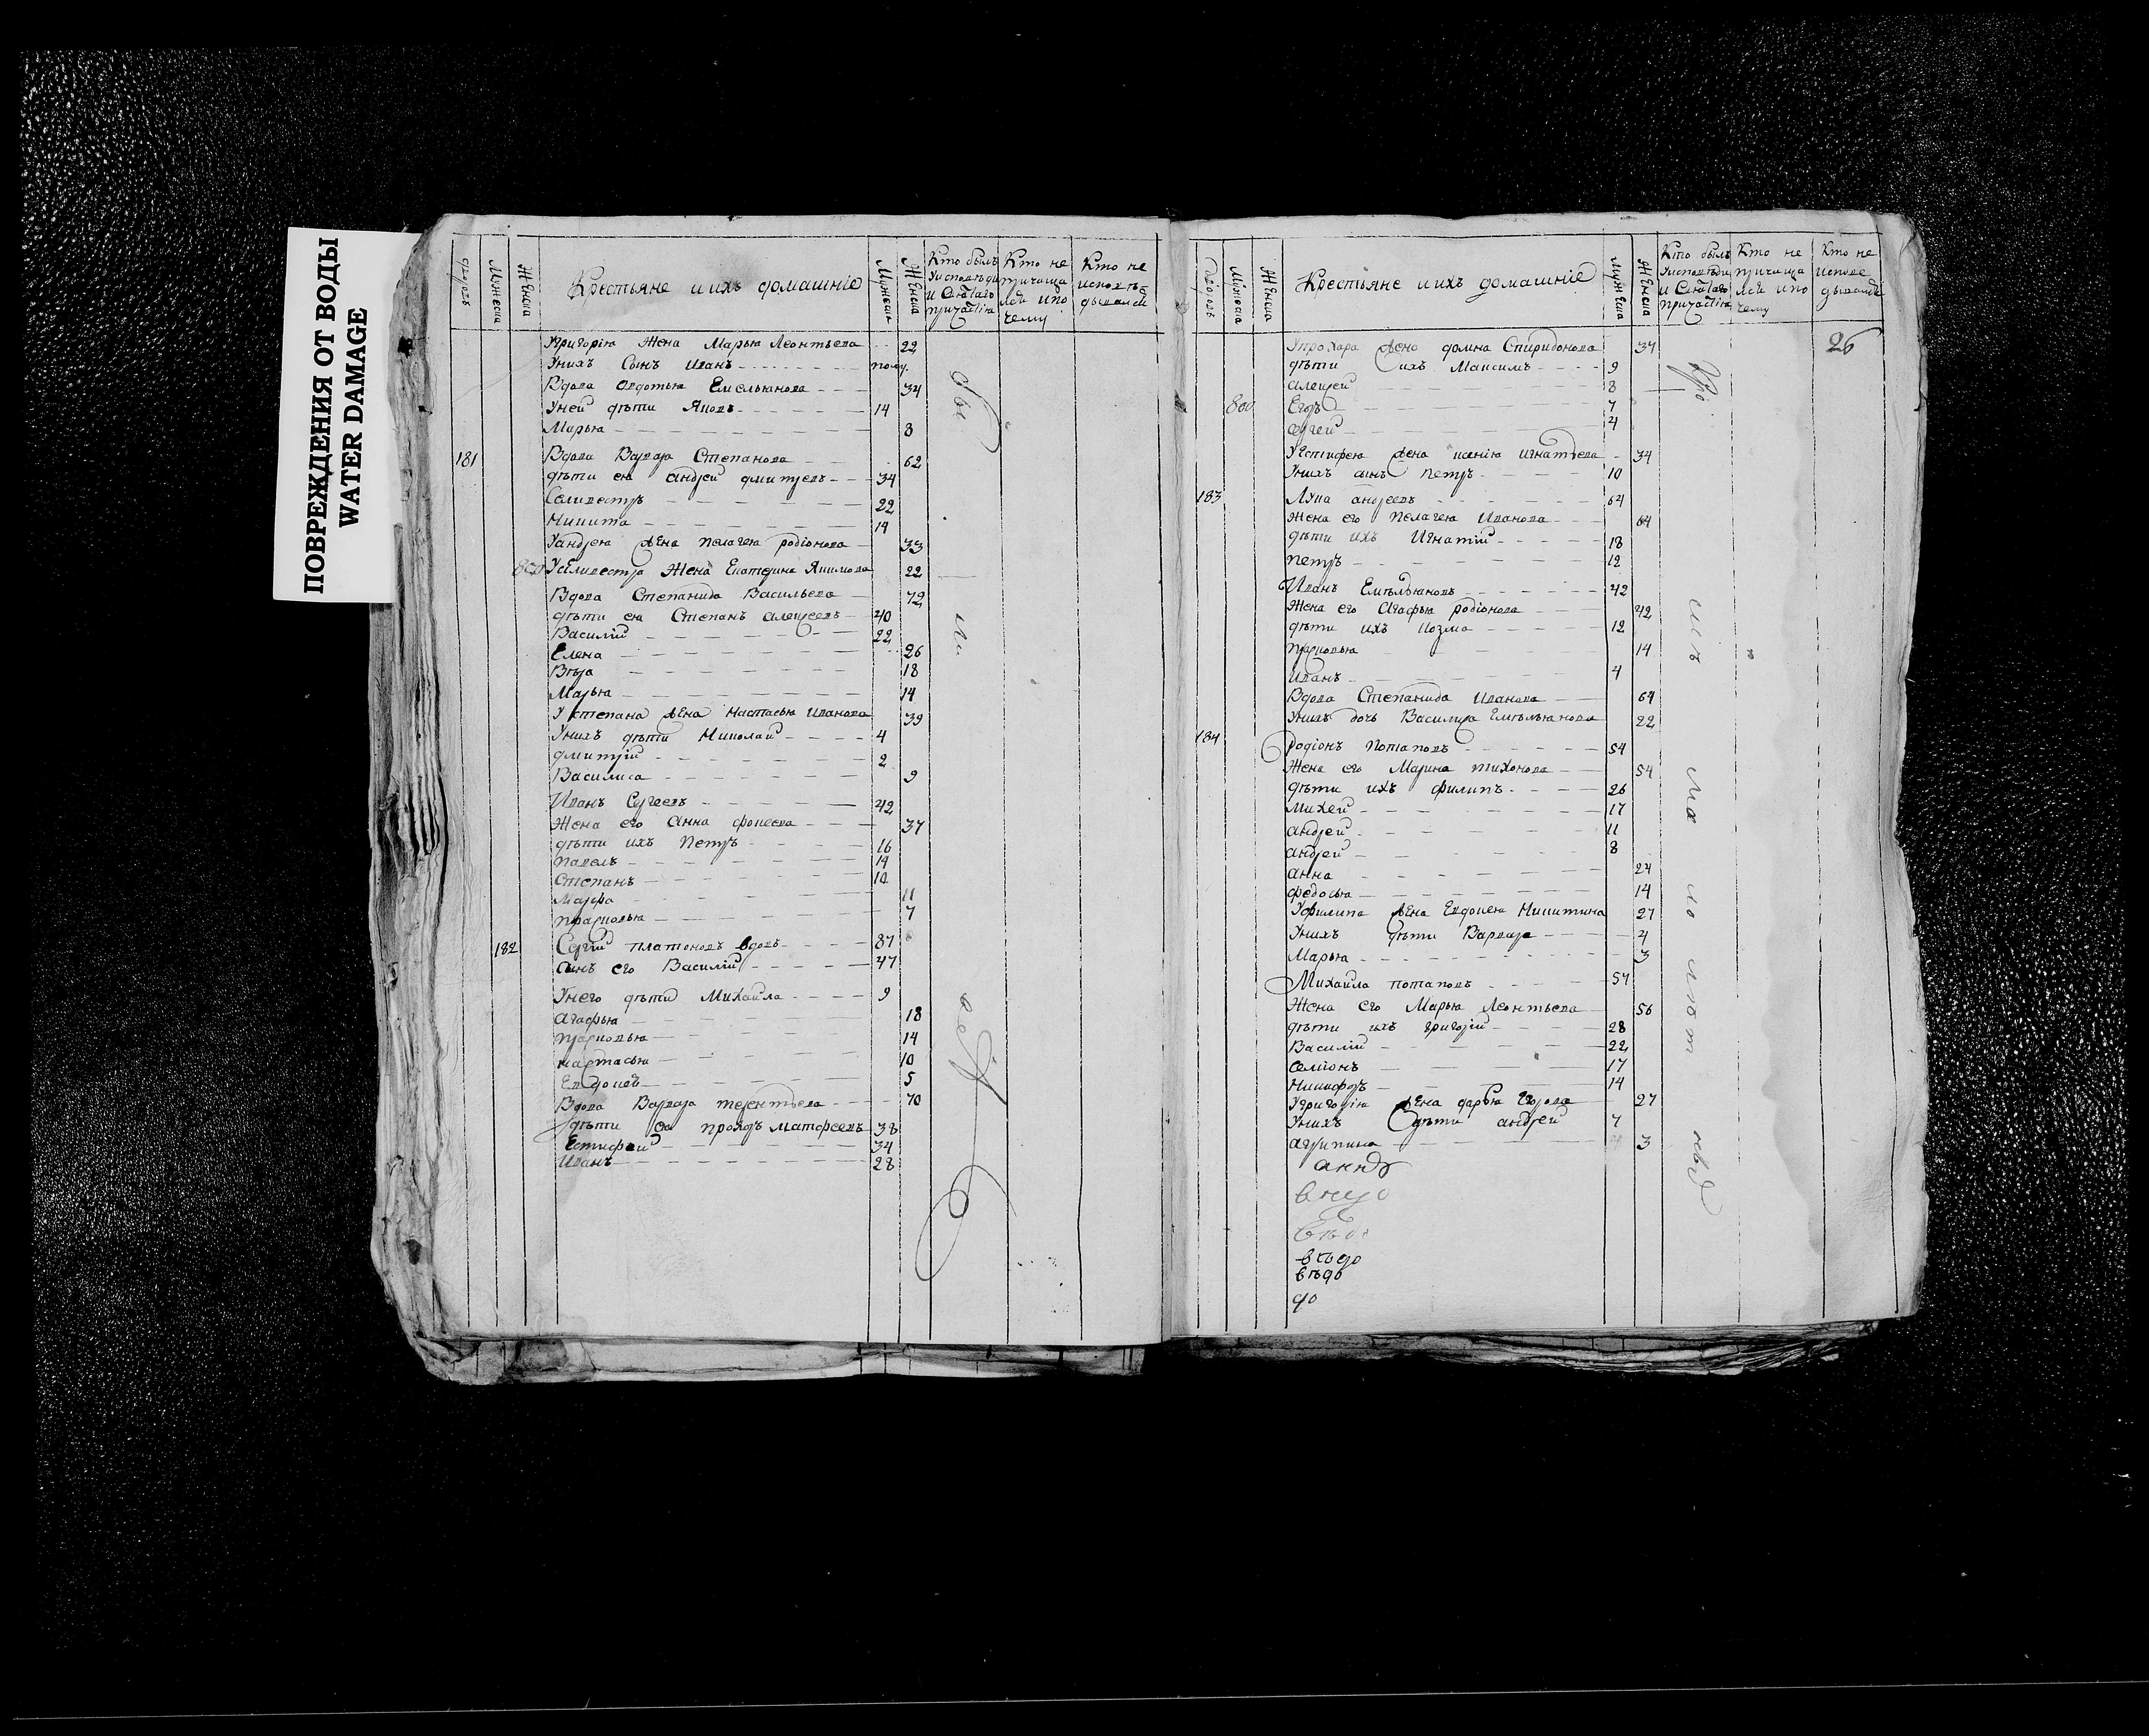 ПОВРЕЖДЕНИЯ ОТ ВОДЫ
WATER DAMAGE
Мужеска
Женска
Крестьяне и ихъ домашніе
Мужеска
Женска
Кто былъ
и Святаго
причастія
Кто не
причаща
лся и по
чему
Кто не
исповѣ
дывался
Угригорїя Жена Марья Леонтьева 22
Унихъ Сынъ Иванъ
Вдова Авдотья Емельянова 34
Уней дѣти Яковъ 14
Марья 8
181 Вдова Варвара Степанова 62
дѣти ея андрей дмитревъ 34
Селивестръ 22
Никита 14
Уандрея жена пелагея родіонова 33
Уселивестра Жена Екатерина Якимова 22
Вдова Степанида Васильева 72
дѣти ея Степанъ алексеевъ 40
Василій 22
Елена 26
Вѣра 18
Марья 14
У степана жена настасья Иванова 39
Унихъ дѣти Николай 4
дмитрій 2
Василиса 9
Иванъ Сергеевъ 42
Жена его Анна фокеева 37
дѣти ихъ Петръ 16
павелъ 14
Степанъ 10
Марфа 11
прасковья 7
182 Сергій платоновъ вдовъ 87
сынъ его Василій 47
Унего дѣти Михайла 9
агафья 18
прасковья 14
настасья 10
5
Вдова Варвара терентьева 70
дѣти ея прохоръ матфеевъ 38
Естифей 34
Иванъ 28
Мужеска
Женска
Крестьяне и ихъ домашніе
Мужеска
Женска
Кто былъ
и Святаго
причастія
Кто не
причаща
лся и по
чему
Кто не
испове
дывался
26
Упрохара жена Спиридонова 37
дѣти ихъ Максимъ 9
алексей 8
800 Егоръ 7
сергей 4
Уестифея жена ксенія игнатьева 34
Унихъ сынъ петръ 10
183 Лука андреевъ 64
Жена его пелагея Иванова 64
дѣти ихъ Игнатій 18
петръ 12
Иванъ Емельяновъ 42
Жена его Агафья родіонова 42
дѣти ихъ козма 12
прасковья 14
Иванъ 4
Вдова Степанида Иванова 64
Унихъ дочь Василиса Емельянова 22
184 родіонъ потаповъ 54
Жена его Марина тихонова 54
дѣти ихъ филипъ 26
михей 17
андрей 11
андрей 8
анна 24
федосья 14
Уфилипа жена Евдокея Никитина 27
Унихъ дѣти Варвара 4
Марья 3
Михайла потаповъ 57
Жена его Марья Леонтьева 56
дѣти ихъ григорій 28
Василій 22
семіонъ 17
Никифоръ 14
Угригорія жена дарья Егорова 27
Унихъ дѣти андрей 7
агрипина 3
вѣдо
до